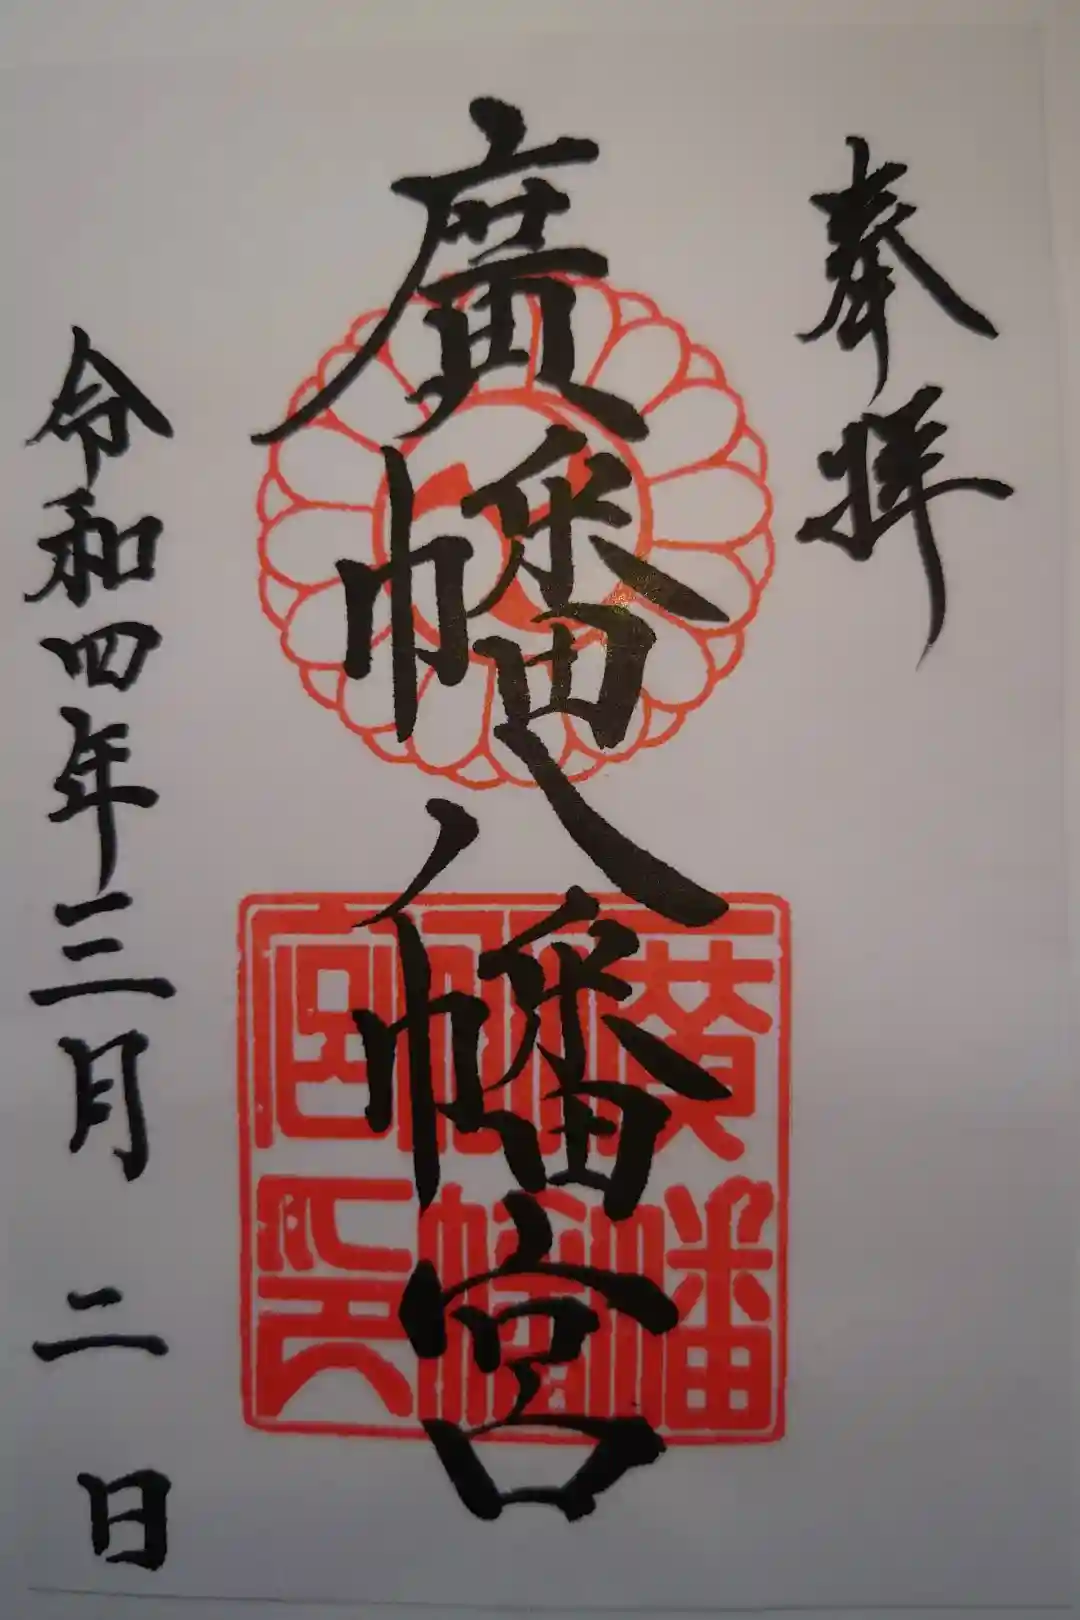 奉拝
廣幡八幡宮
令和四年三月二日
廣幡八幡宮印